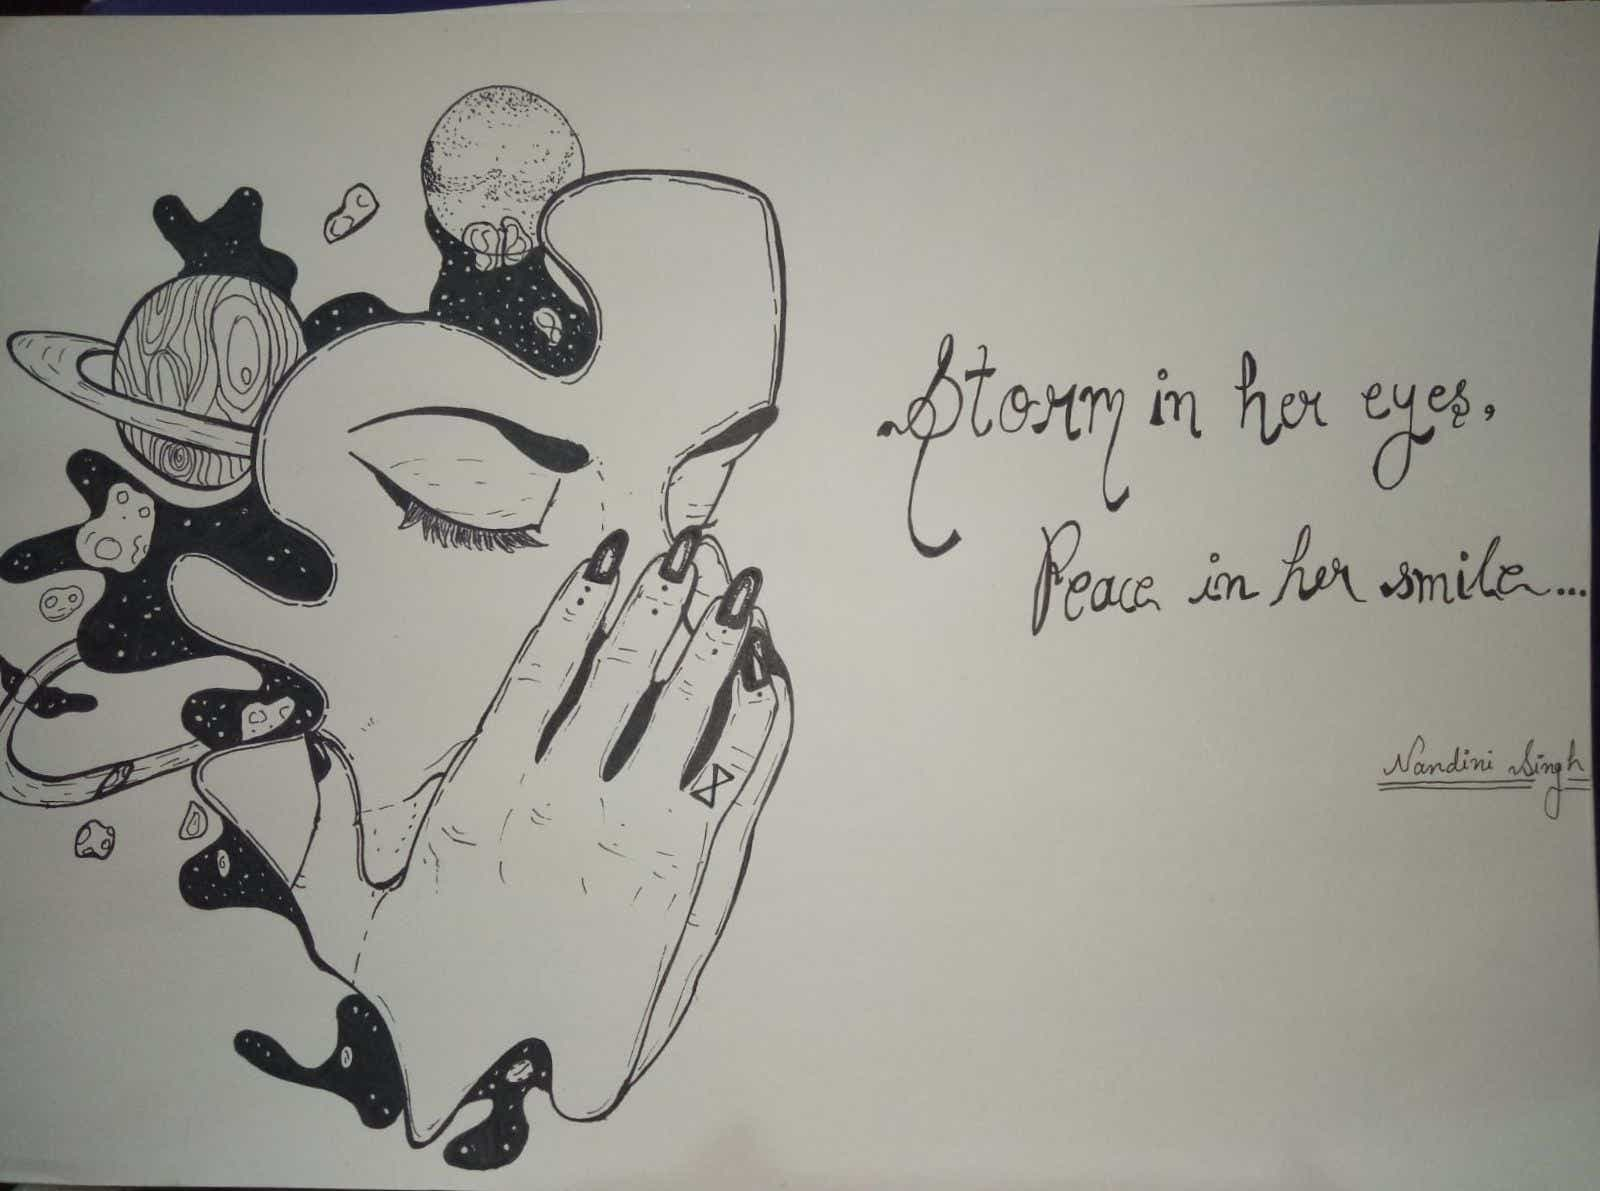 Storm in her eyes,
Peace in her smile...
Nandini Singh